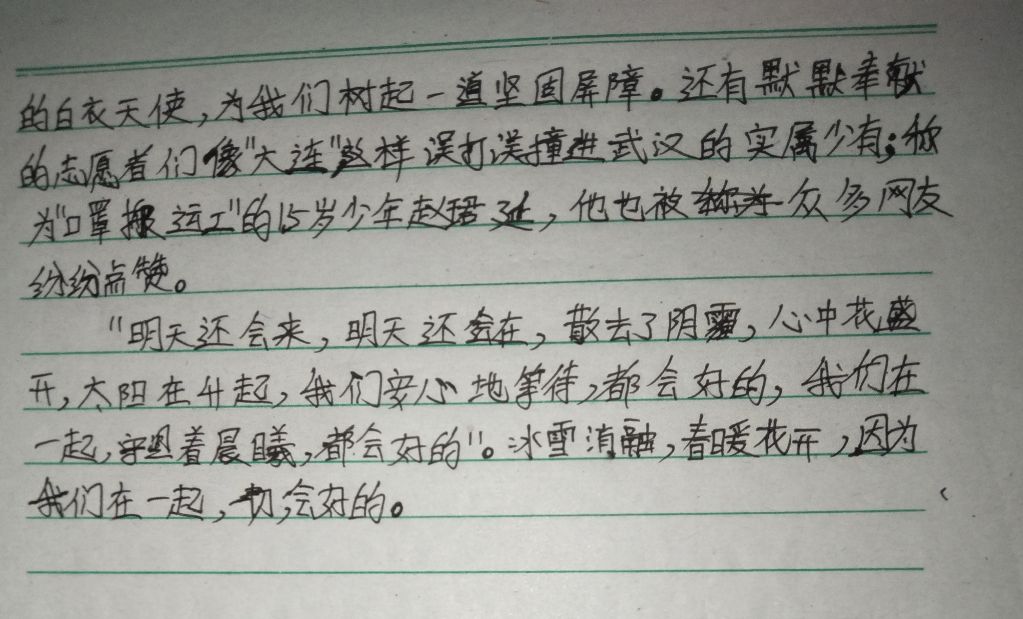 的白衣天使,为我们树起一道坚固屏障。还有默默奉献
的志愿者们像"大连"这样误打误撞进武汉的实属少有;称
为"口罩搬运工"的15岁少年赵珺延,他也被众多网友
纷纷点赞。
"明天还会来,明天还会在,散去了阴霾,心中花盛
开,太阳在升起,我们安心地等待,都会好的,我们在
一起,守望着晨曦,都会好的"。冰雪消融,春暖花开,因为
我们在一起,一切会好的。